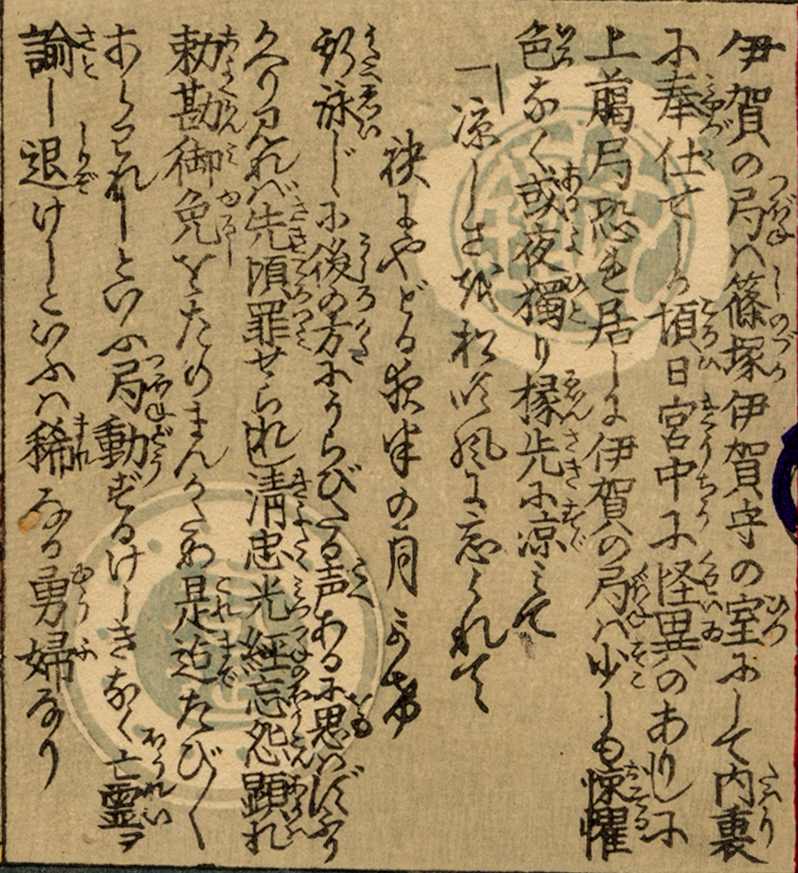 伊賀の局ハ篠塚伊賀守の室にして内裏
に奉仕せしが頃日宮中に怪異のありしに
上﨟局恐れ居しに伊賀の局ハ少しも悚懼
色なく或夜獨り椽先に凉ミて
凉しさを松吹風に忘られて
袂にやどる夜半の月かげ
ト詠じゝに後の方にうらびたる声あるに思ハずふり
かへり見れバ先頃罪せられし清忠光經忘怨顕れ
勅勘御免をたのまんかため是迠たび〳〵
あらこれしといふ局動ずるけしきなく亡霊ヲ
諭し退けしといふハ稀なる勇婦なり